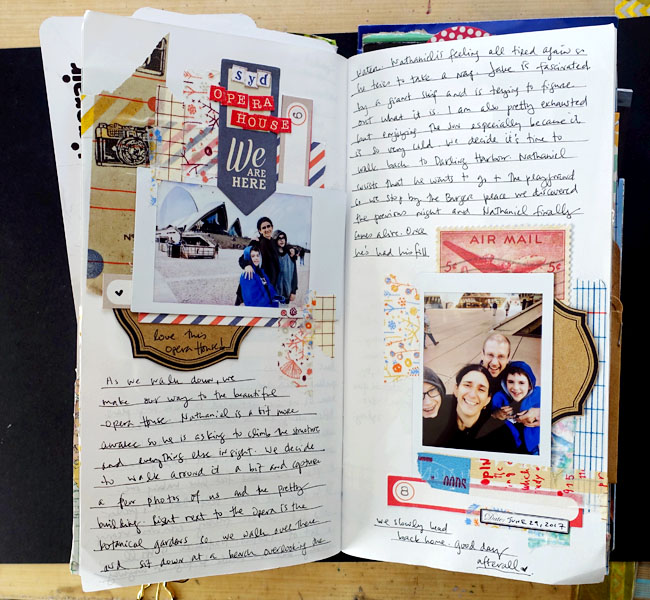 syd
OPERA
HOUSE
We
ARE
HERE
love this
Opera House!
As we walk down, we
make our way to the beautiful
Opera House. Nathaniel is a bit more
awake so he is asking to climb the structure
and everything else in sight. We decide
to walk around it a bit and capture
a few photos of us and the pretty
building. Right next to the Opera is the
botanical gardens so we walk over there
and sit down at a bench overlooking the
water. Nathaniel is feeling all tired again so
he tries to take a nap. Jake is fascinated
by a giant ship and is trying to figure
out what it is. I am also pretty exhausted
but enjoying the sun especially because it
is so very cold. We decide it's time to
walk back to Darling Harbor. Nathaniel
insists that he wants to go to the playground
so we stop by the Burger place we discovered
the previous night and Nathaniel finally
comes alive. Once
he's had his fill
AIR MAIL
5¢
5¢
8
Date: JUNE 29, 2017
we slowly head
back home. Good day
afterall